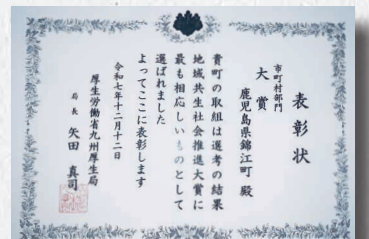 表彰状
市町村部門
大賞
鹿児島県錦江町 殿
貴町の取組は選考の結果
地域共生社会推進大賞に
最も相応しいものとして
選ばれました
よってここに表彰します
令和七年十二月十二日
厚生労働省九州厚生局
局長 矢田 真司